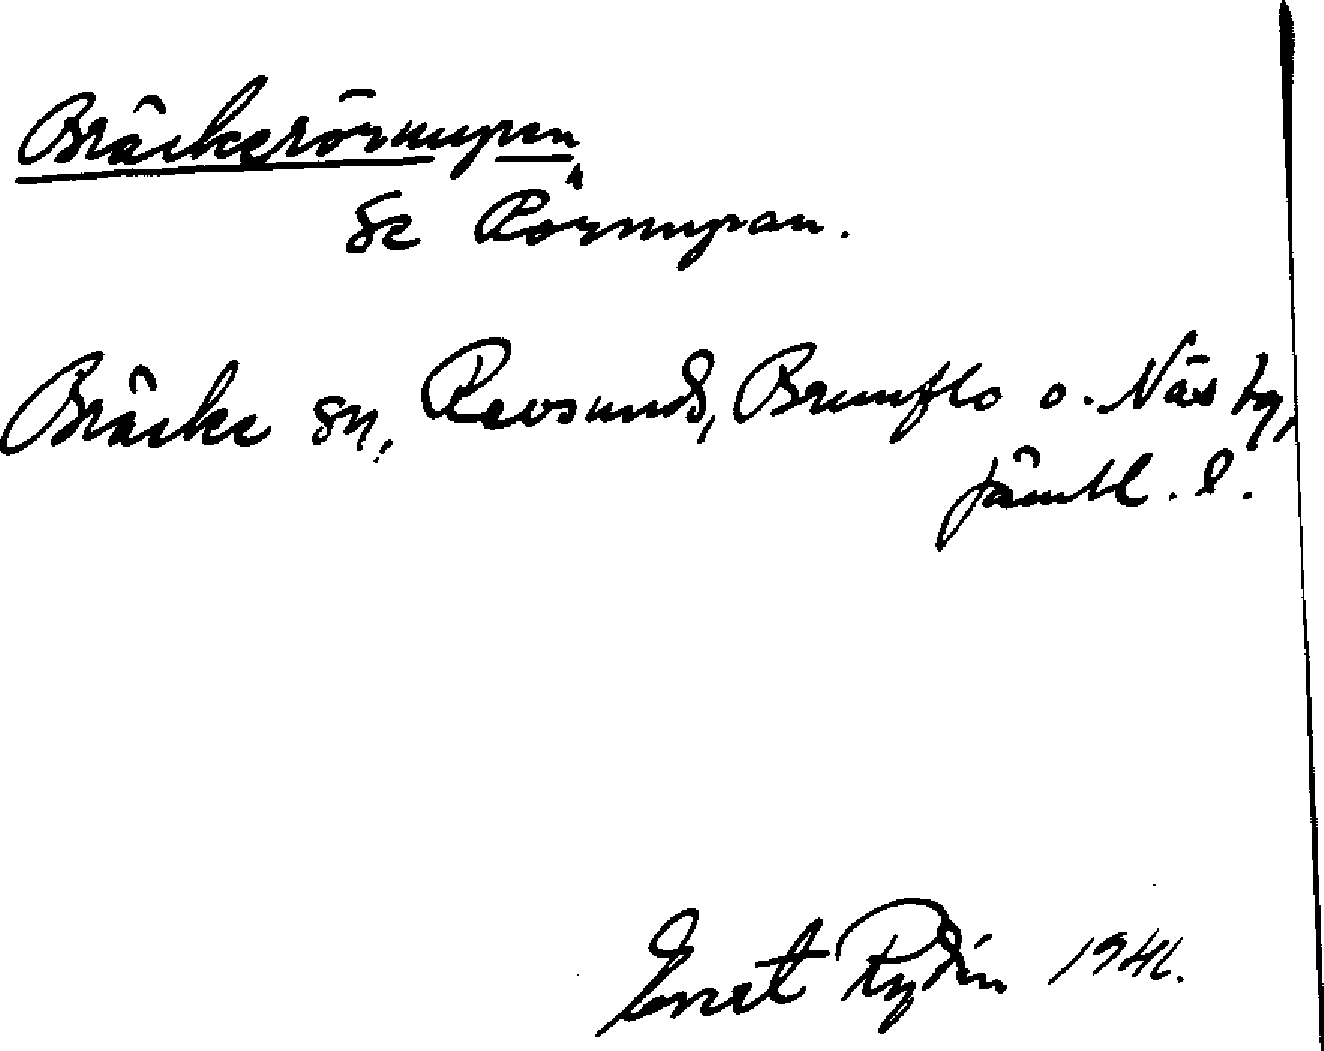 Bräckerörmyran,
Se Rörmyran.
Bräcke sn, Revsund, Brunflo o. Näs tg,
Jämtl. l.
Ernst Rydin 1941.